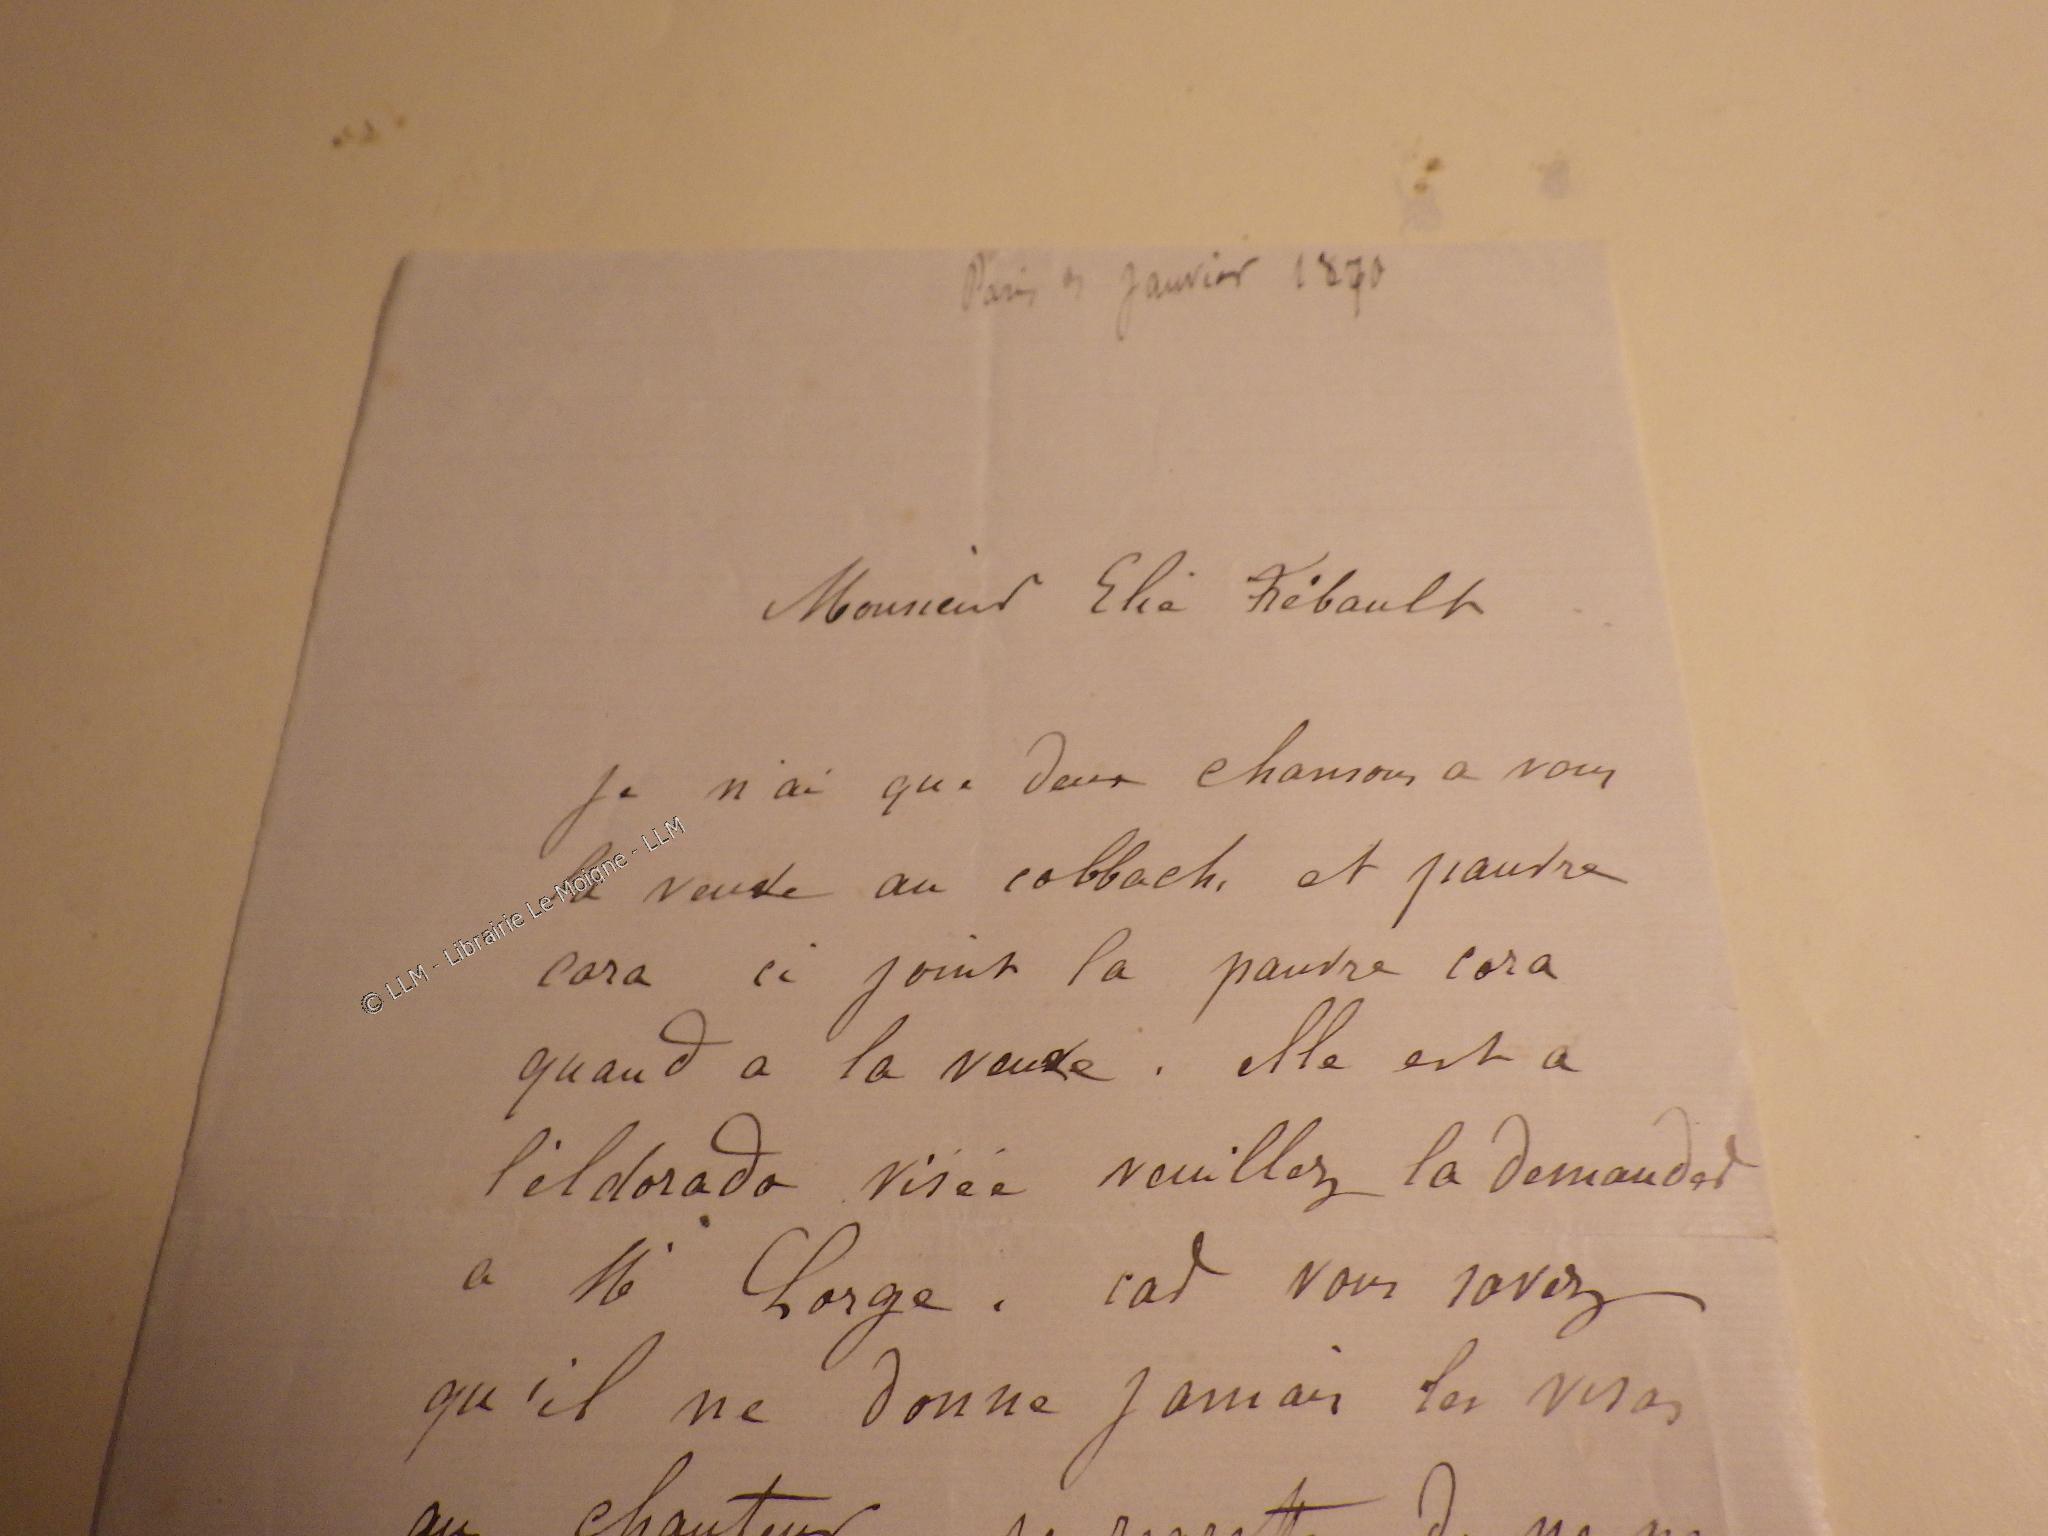 Paris Janvier 1870
Monsieur Elie Frébault
Je n'ai que deux chansons a vous
la vente au cobbach. et pauvre
cora ci joint la pauvre cora
quand a la vente. elle est a
l'éldorado visée veuillez la demander
a Mr Lorge. car vous savez
qu'il ne donne jamais les visas
au chanteur je regrette de ne
© LLM - Librairie Le Moigne - LLM